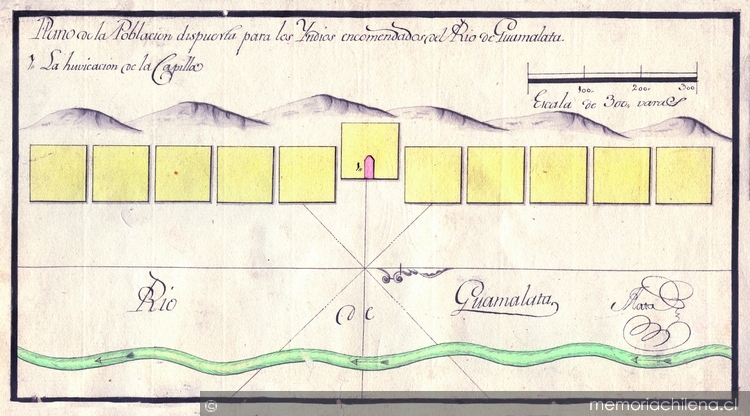 Plano de la Poblacion dispuesta para los Yndios encomendados del Rio de Guamalata.
1. La huvicacion de la Capilla
100. 200. 300
Escala de 300, varas
1.
Rio de Guamalata
Mata
© memoriachilena.cl